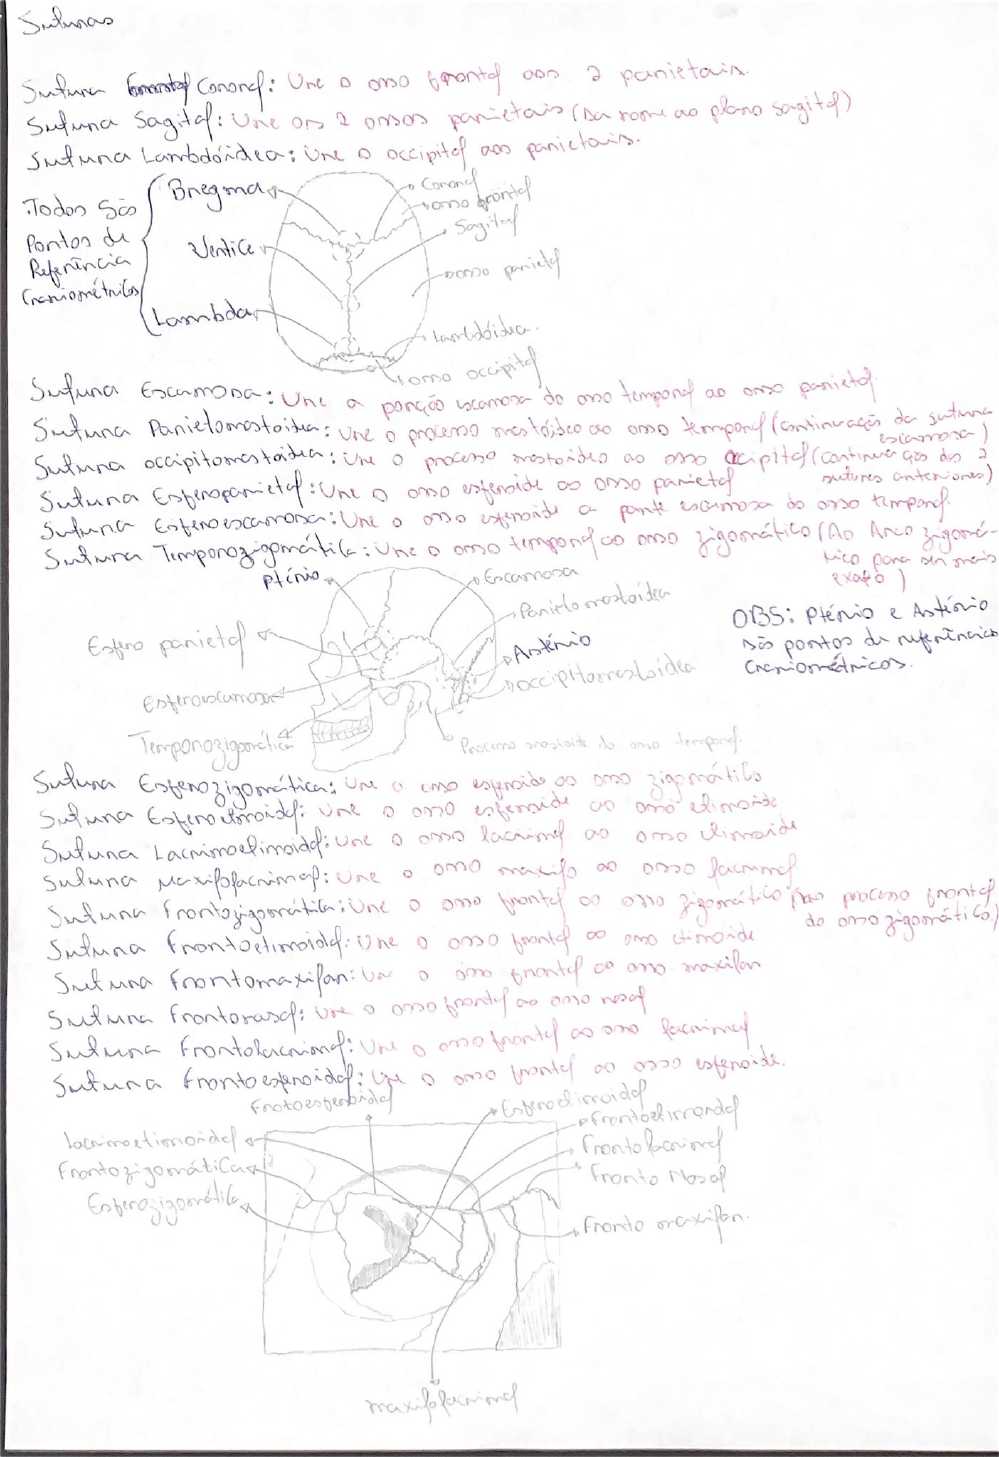 Suturas
Sutura Coronal: Une o osso frontal aos 2 parietais.
Sutura Sagital: Une os 2 ossos parietais (Da nome ao plano sagital)
Sutura Lambdóidea: Une o occipital aos parietais.
Todos São
Pontos de
Referência
Craniométricos
Bregma
Vertice
Lambda
Coronal
osso frontal
Sagital
osso parietal
Lambdóidea.
osso occipital
Sutura Escamosa: Une a porção escamosa do osso temporal ao osso parietal
Sutura Parietomastoidea: Une o processo mastoideo ao osso temporal (continuação da sutura
escamosa)
Sutura occipitomastoidea: Une o processo mastoideo ao osso occipital (continuação das 2
sutures anteriores)
Sutura Esfenoparietal: Une o osso esfenoide ao osso parietal
Sutura Esfenoescamosa: Une o osso esfenoide a parte escamosa do osso temporal.
Sutura Temporozigomática: Une o osso temporal ao osso zigomático (Ao Arco zigomá-
tico para ser mais
exato)
Ptério
Escamosa
Parietomastoidea
Astério
occipitomastoidea
Processo mastoide do osso temporal.
Esfeno parietal
Esfenoescamosa
Temporozigomática
OBS: Ptério e Astério
são pontos de referência
Craniométricos.
Sutura Esfenozigomática: Une o osso esfenoide ao osso zigomático
Sutura Esfenoetmoidal: Une o osso esfenoide ao osso etimoide
Sutura Lacrimoetimoidal: Une o osso lacrimal ao osso etimoide
Sutura Maxilolacrimal: Une o osso maxilo ao osso lacrimal
Sutura Frontozigomática: Une o osso frontal ao osso zigomático (ao processo frontal
do osso zigomático.)
Sutura Frontoetimoidal: Une o osso frontal ao osso etimoide
Sutura Frontomaxilar: Une o osso frontal ao osso maxilar
Sutura Frontonasal: Une o osso frontal ao osso nasal
Sutura Frontolacrimal: Une o osso frontal ao osso lacrimal
Sutura Frontoesfenoidal: Une o osso frontal ao osso esfenoide.
Frotoesfenoidal
Esfenoetimoidal
Frontoetimoidal
Frontolacrimal
Fronto Nasal
Fronto maxilar.
Lacrimoetimoidal
Frontozigomática
Esfenozigomática
maxilolacrimal